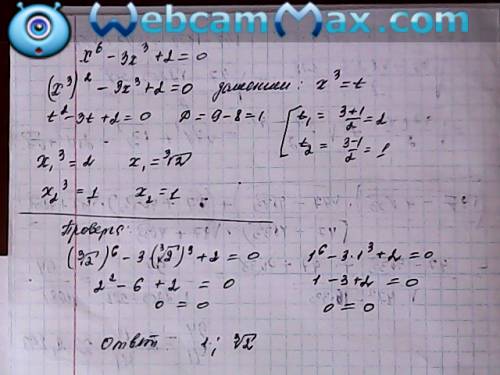 WebcamMax.com
x⁶ - 3x³ + 2 = 0
(x³)² - 3x³ + 2 = 0 x³ = t
t² - 3t + 2 = 0 D = 9 - 8 = 1 [ t₁ = (3+1)/2 = 2
t₂ = (3-1)/2 = 1
x₁³ = 2 x₁ = ³√2
x₂³ = 1 x₂ = 1
Проверка:
(³√2)⁶ - 3(³√2)³ + 2 = 0 1⁶ - 3·1³ + 2 = 0
2² - 6 + 2 = 0 1 - 3 + 2 = 0
0 = 0 0 = 0
Ответ: 1; ³√2